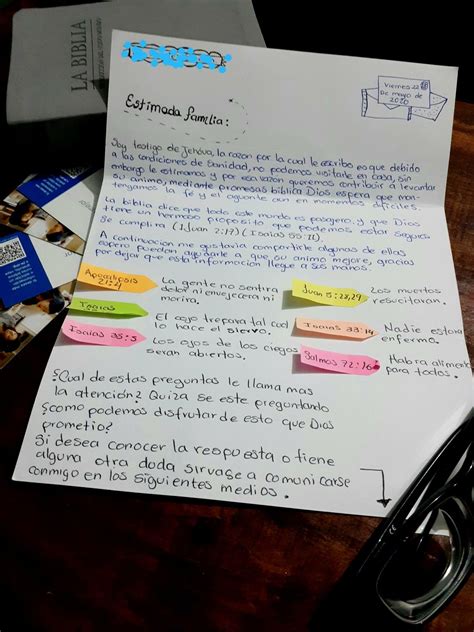 LA BIBLIA
Viernes 22
De mayo de
2020
Estimada familia:
Soy testigo de Jehóva, la razon por la cual le escribo es que debido
a las condiciones de Sanidad, no podemos visitarle en casa, sin
embargo le estimamos y por esa razon queremos contribuir a levantar
su animo, mediante promesas biblica Dios espera que man-
tengamos la fe y el aguante aun en momentos difíciles.
La biblica dice que todo este mundo es pasajero, y que Dios
tiene un hermoso proposito que podemos estar seguros
Se cumplira (1 Juan 2:17) (Isaias 55:11)
A continuacion me gustaria compartirle algunas de ellas
espero puedan ayudarle a que su animo mejore, gracias
por dejar que esta información llegue a sus manos.
Apocalipsis
21:4
La gente no sentira
dolor ni envejecera ni
morira.
Juan 5:28,29
Los muertos
resucitaran.
El cojo trepara tal cual
lo hace el siervo.
Isaias 33:14
Nadie estara
enfermo.
Isaias 35:5
Los ojos de los ciegos
seran abiertos.
Salmos 72:16
Habra alimento
para todos.
¿Cual de estas preguntas le llama mas
la atención? Quiza se este preguntando
¿como podemos disfrutar de esto que Dios
prometio?
Si desea conocer la respuesta o tiene
alguna otra duda sirvase a comunicarse
conmigo en los siguientes medios.